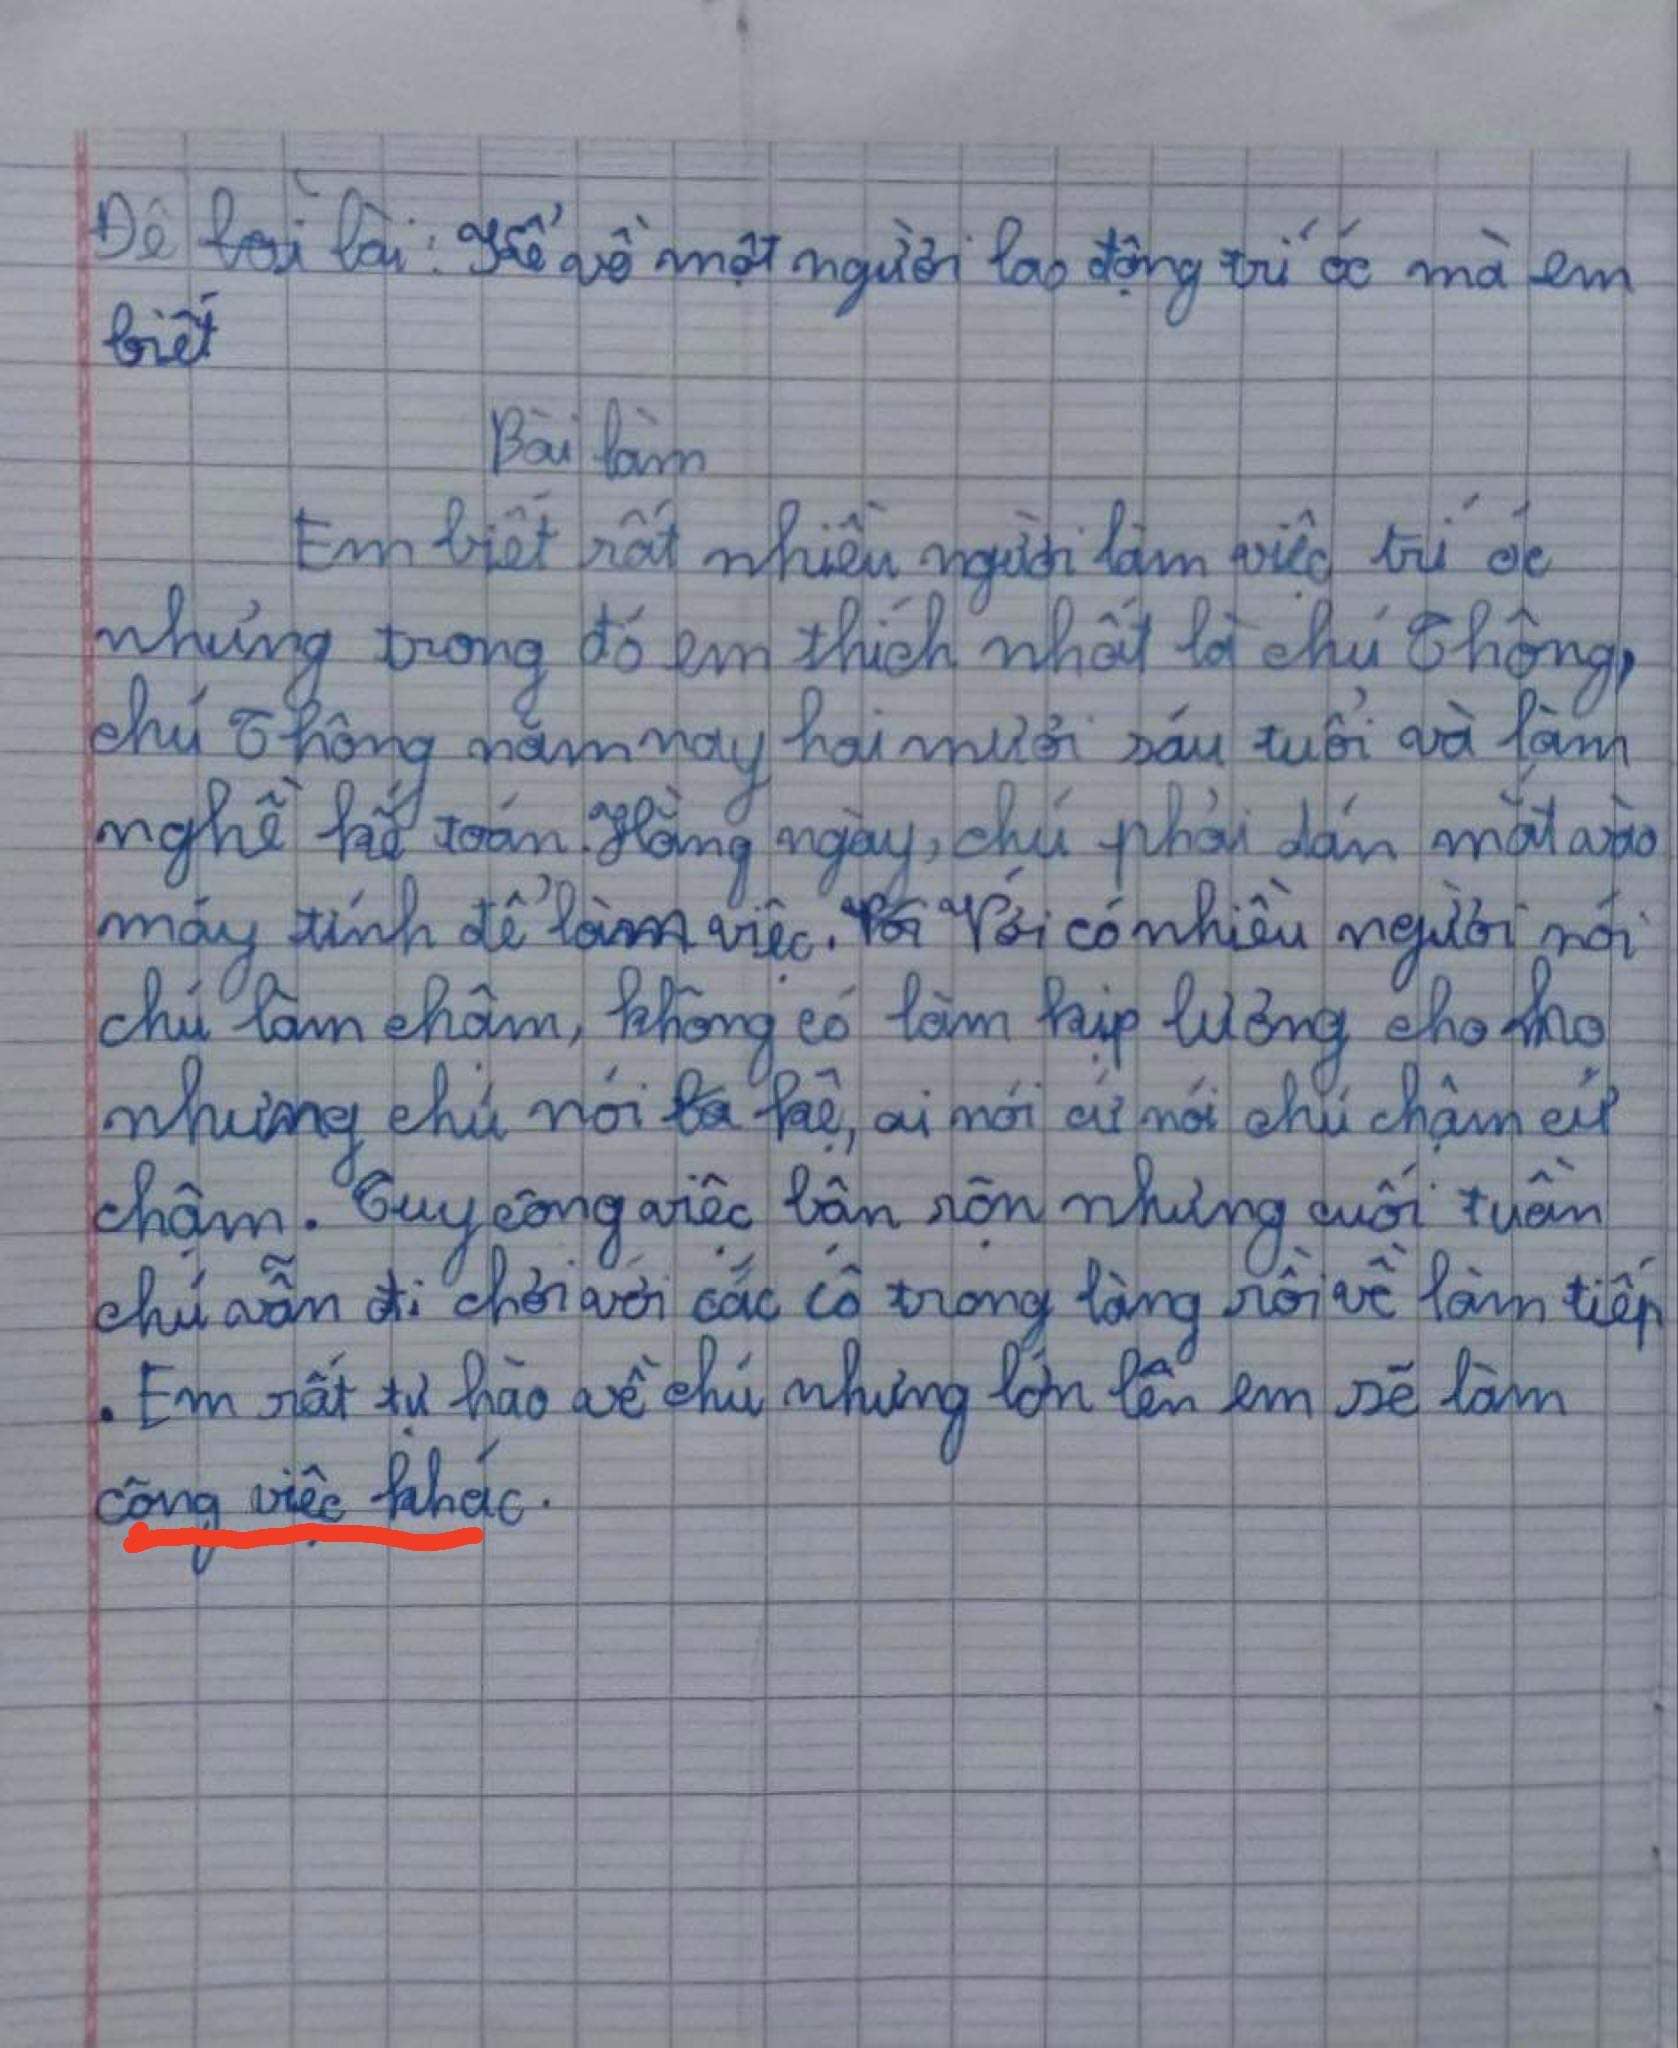 Đề bài: Kể về một người lao động trí óc mà em
biết
Bài làm
Em biết rất nhiều người làm việc trí óc
nhưng trong đó em thích nhất là chú Thông,
chú Thông năm nay hai mươi sáu tuổi và làm
nghề kế toán. Hằng ngày, chú phải dán mắt vào
máy tính để làm việc. Với có nhiều người nói
chú làm chậm, không có làm kịp lương cho họ
nhưng chú nói kệ, ai nói cứ nói chú chậm cứ
chậm. Tuy công việc bận rộn nhưng cuối tuần
chú vẫn đi chơi với các cô trong làng rồi về làm tiếp
. Em rất tự hào về chú nhưng lớn lên em sẽ làm
công việc khác.